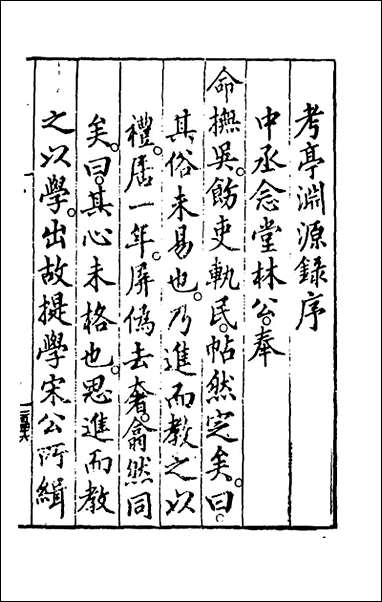 考亭淵源錄序
中丞念堂林公。奉
命撫吳。飭吏軌民。帖然定矣。曰。
其俗未易也。乃進而教之以
禮。居一年。屏僞去奢。翕然同
矣。曰。其心未格也。思進而教
之以學。出故提學宋公所緝